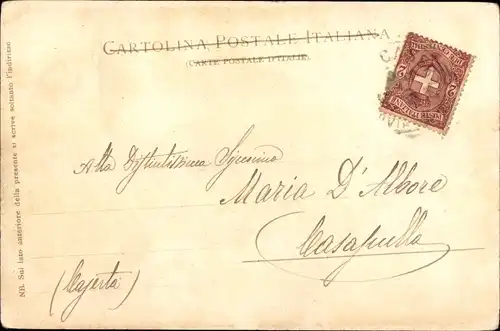 CARTOLINA POSTALE ITALIANA
(CARTE POSTALE D'ITALIE)
Alla Distintissima Signorina
Maria D'Albore
Casapulla
(Caserta)
NB. Sul lato anteriore della presente si scrive soltanto l'indirizzo
POSTE ITALIANE
2
2
CENTESIMI